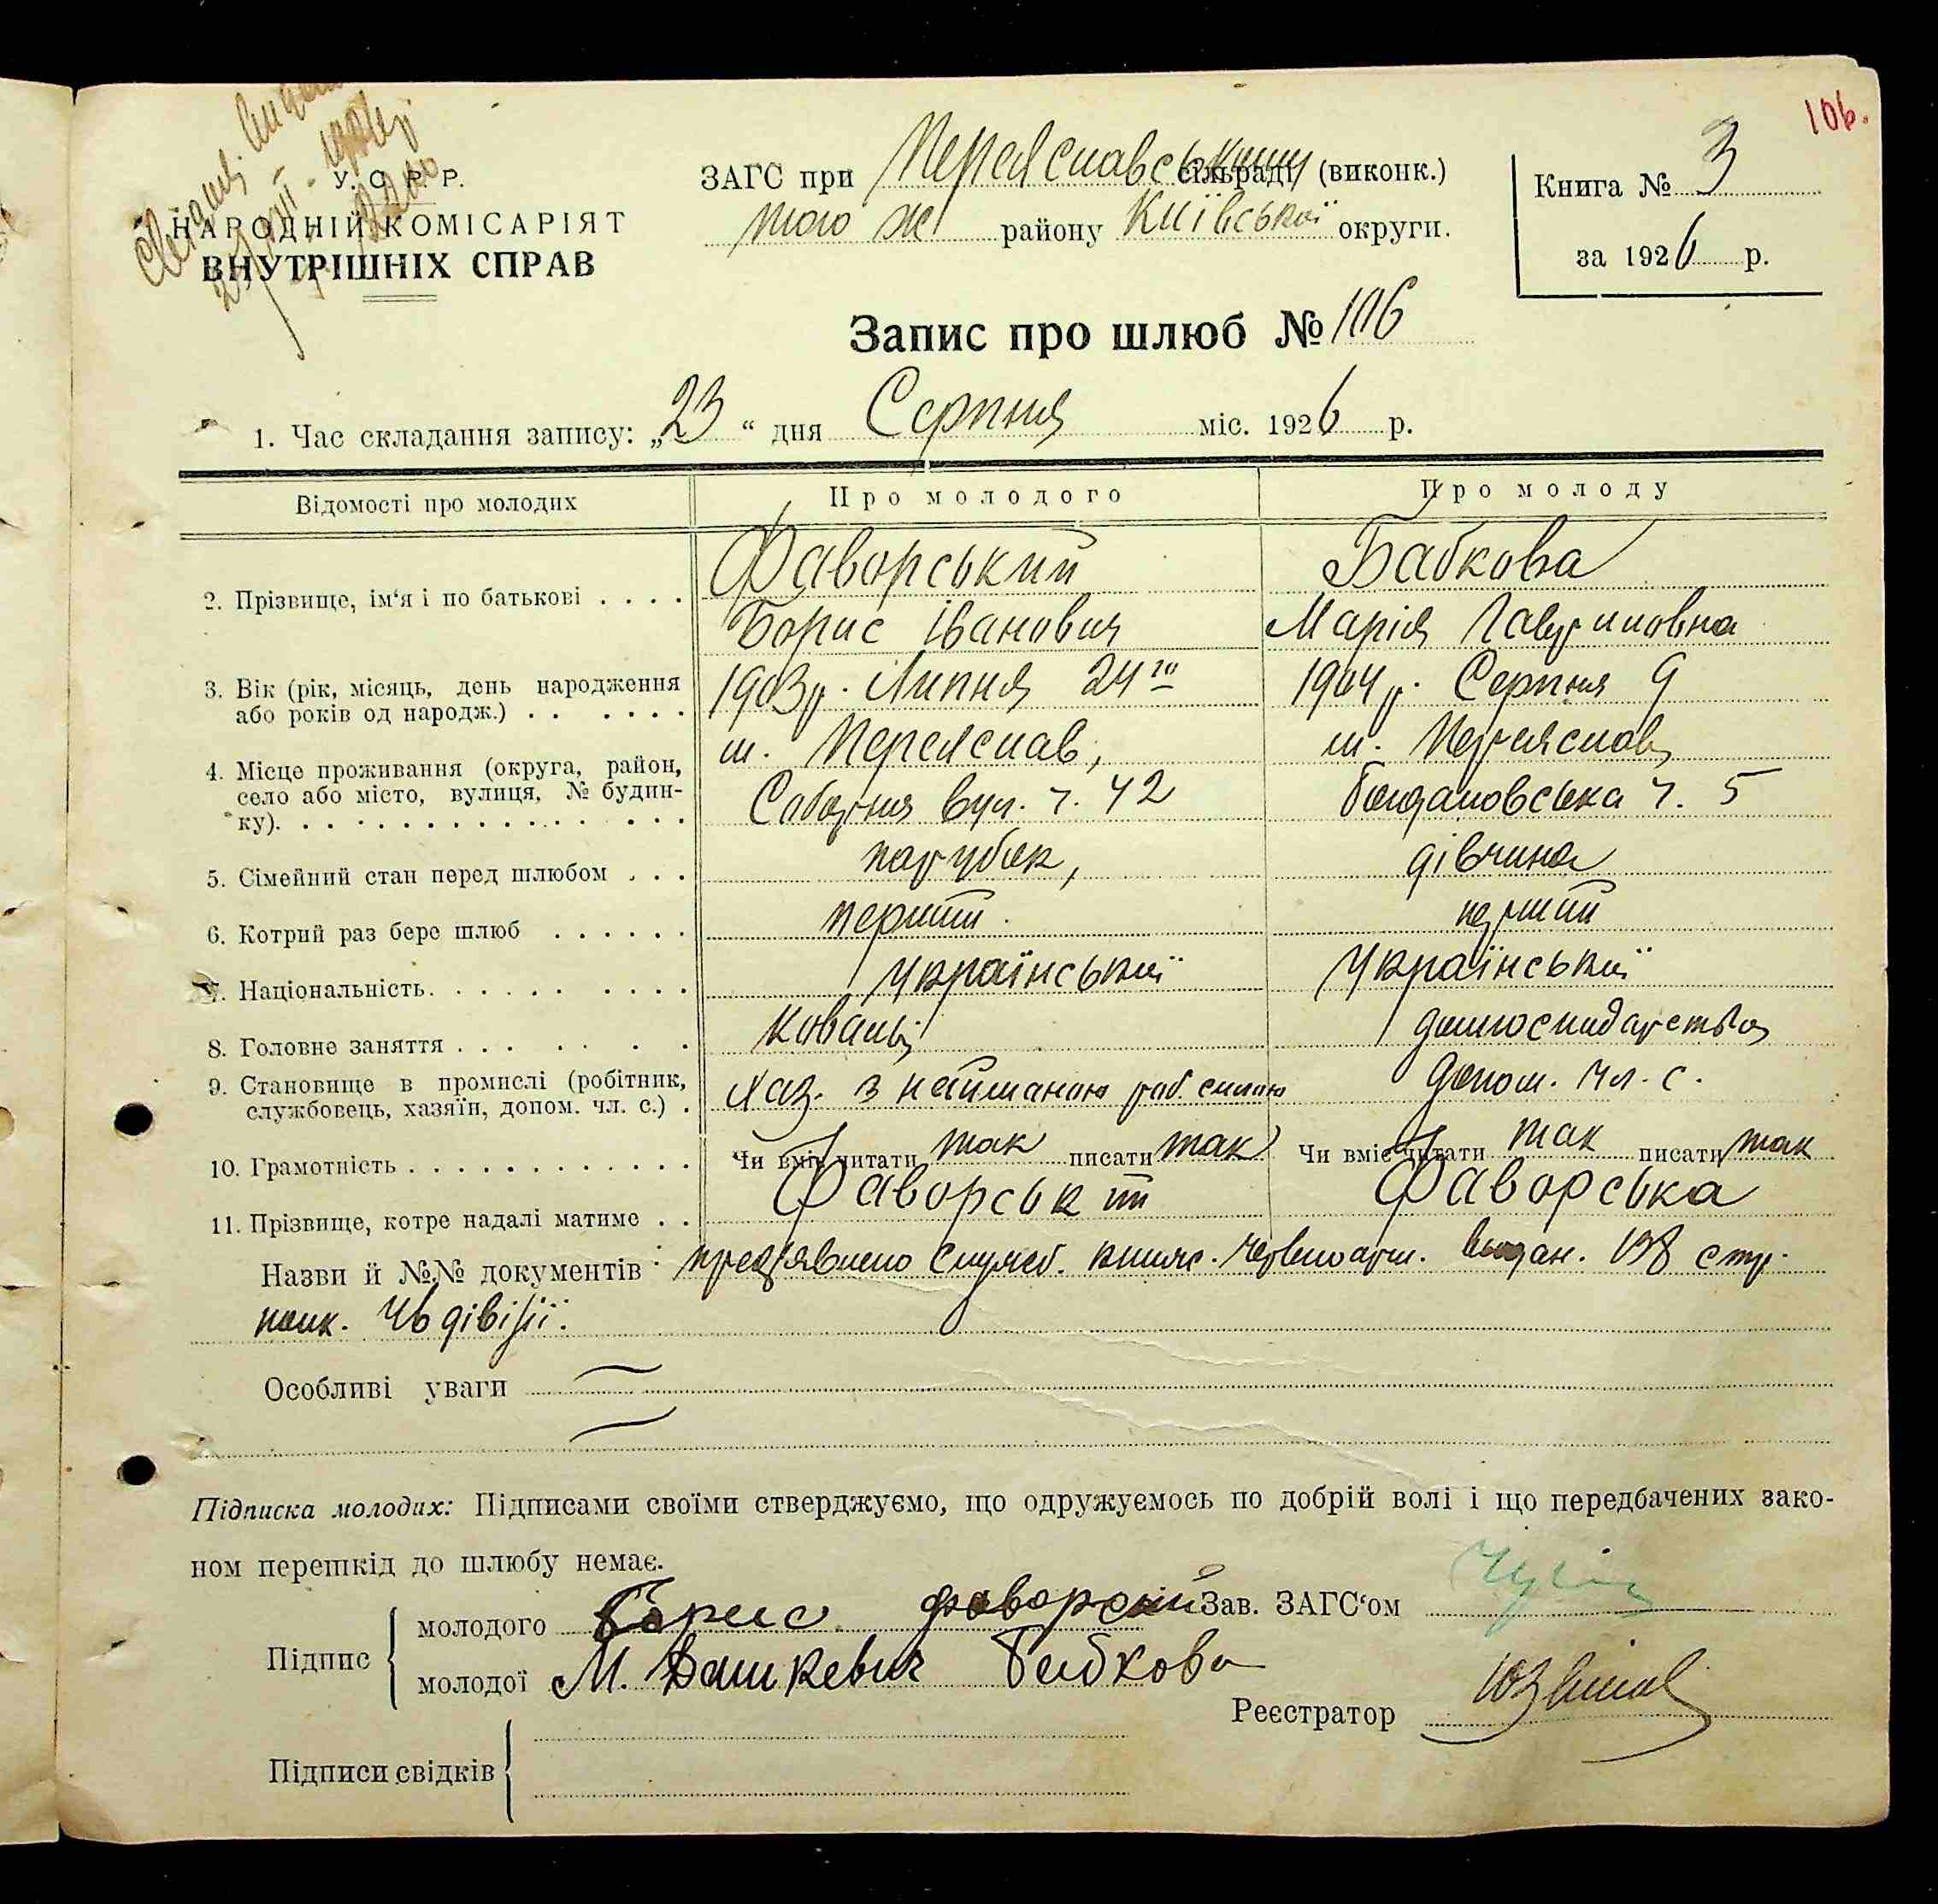 106.
У. С. Р. Р.
НАРОДНІЙ КОМІСАРІЯТ
ВНУТРІШНІХ СПРАВ
ЗАГС при Переяславському сільраді (виконк.)
того ж району Київської округи.
Книга № 3
за 1926 р.
Запис про шлюб № 106
1. Час складання запису: „23“ дня Серпня міс. 1926 р.
Відомості про молодих
Про молодого
Про молоду
2. Прізвище, ім‘я і по батькові . . . .
Фаворський
Борис Іванович
Бабкова
Марія Гавриловна
3. Вік (рік, місяць, день народження
або років од народж.) . . . . . .
1903 р. Липня 24го
1904 р. Серпня 9
4. Місце проживання (округа, район,
село або місто, вулиця, № будин-
ку). . . . . . . . . . . . . . . .
м. Переяслав,
Соборня вул. ч. 42
м. Переяслав
Богдановська ч. 5
5. Сімейний стан перед шлюбом . . .
парубок,
дівчина
6. Котрий раз бере шлюб . . . . . .
перший
перший
7. Національність. . . . . . . . . .
Української
Української
8. Головне заняття . . . . . . . .
Коваль
домгосподарство
9. Становище в промислі (робітник,
службовець, хазяїн, допом. чл. с.) .
Хаз. з найманою роб. силою
допом. чл. с.
10. Грамотність . . . . . . . . . . . .
Чи вміє читати так писати так
Чи вміє читати так писати так
11. Прізвище, котре надалі матиме . .
Фаворський
Фаворська
Назви й №№ документів: предявлено служеб. книж. червеноарм. видан. 138 стр.
полк. 46 дівізії.
Особливі уваги
Підписка молодих: Підписами своїми стверджуємо, що одружуємось по добрій волі і що передбачених зако-
ном перешкід до шлюбу немає.
Підпис
молодого Борис Фаворский
молодої М. Дашкевич Бабкова
Зав. ЗАГС‘ом
Реєстратор
Підписи свідків